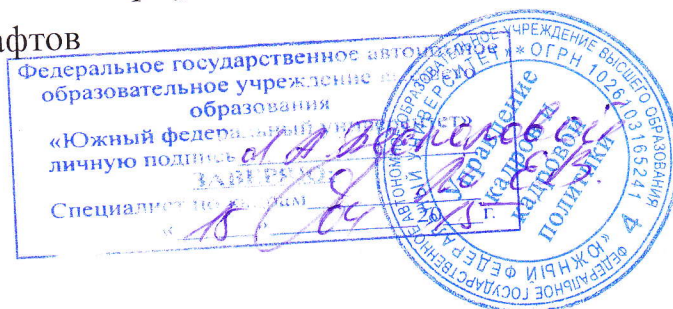 афтов
Федеральное государственное автономное
образовательное учреждение высшего
образования
«Южный федеральный университет»
личную подпись
ЗАВЕРЯЮ
Специалист по кадрам
« 15 » 04 2015 г.
ФЕДЕРАЛЬНОЕ ГОСУДАРСТВЕННОЕ АВТОНОМНОЕ ОБРАЗОВАТЕЛЬНОЕ УЧРЕЖДЕНИЕ ВЫСШЕГО ОБРАЗОВАНИЯ
«ЮЖНЫЙ ФЕДЕРАЛЬНЫЙ УНИВЕРСИТЕТ» * ОГРН 1026103165241
Управление
кадров и
кадровой
политики
4